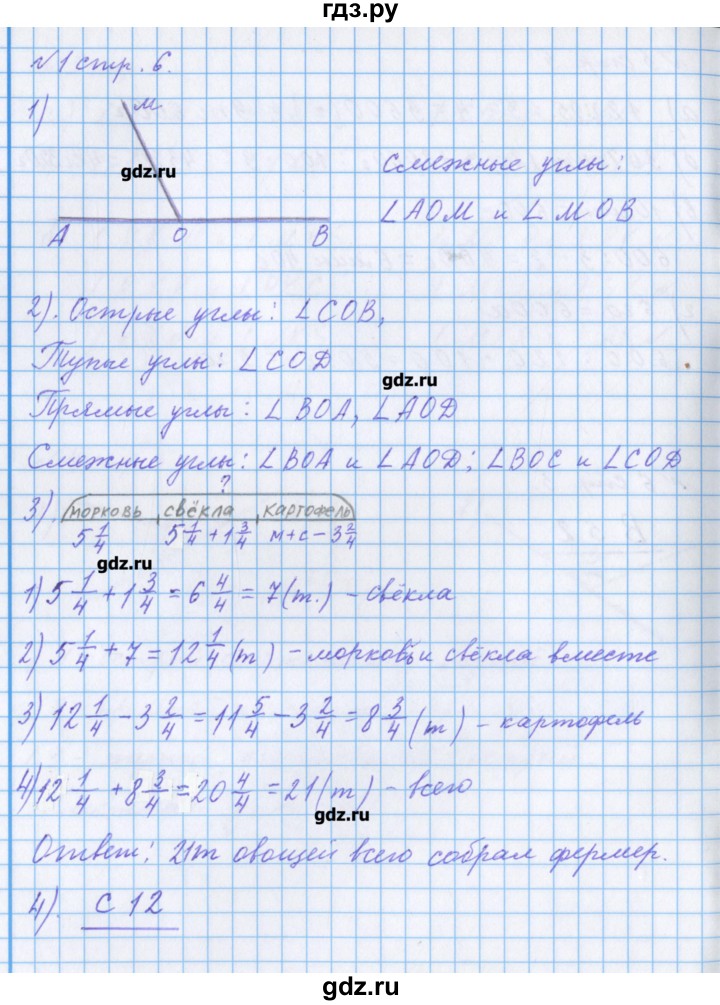 гдз.ру
№1 стр. 6.
1)
М
gdz.ru
А О В
Смежные углы:
∠АОМ и ∠МОВ
2). Острые углы: ∠СОВ,
Тупые углы: ∠СОD
gdz.ru
Прямые углы: ∠ВОА, ∠АОD
Смежные углы: ∠ВОА и ∠АОD; ∠ВОС и ∠СОD
?
3). морковь свёкла картофель
5 1/4 5 1/4 + 1 3/4 м+с – 3 2/4
gdz.ru
1) 5 1/4 + 1 3/4 = 6 4/4 = 7 (т.) – свёкла
2) 5 1/4 + 7 = 12 1/4 (т) – морковь и свёкла вместе
3) 12 1/4 – 3 2/4 = 11 5/4 – 3 2/4 = 8 3/4 (т) – картофель
4) 12 1/4 + 8 3/4 = 20 4/4 = 21 (т) – всего
gdz.ru
Ответ: 21т овощей всего собрал фермер.
4). С 12
gdz.ru